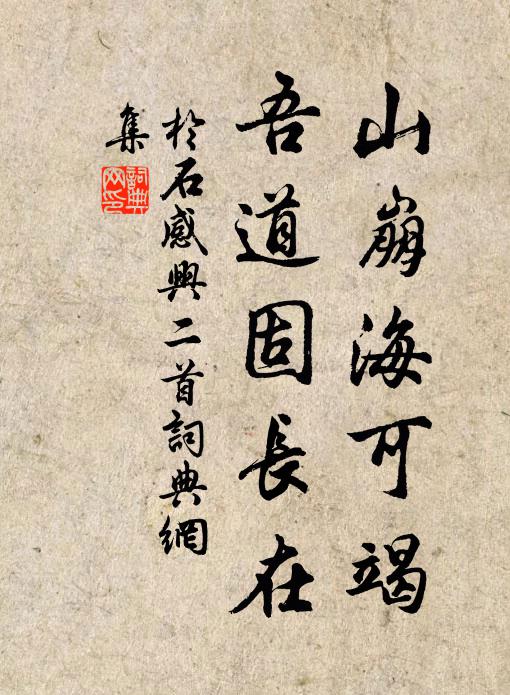 山崩海可竭
吾道固長在
於石感興二首詞典網
集
詞典
网印